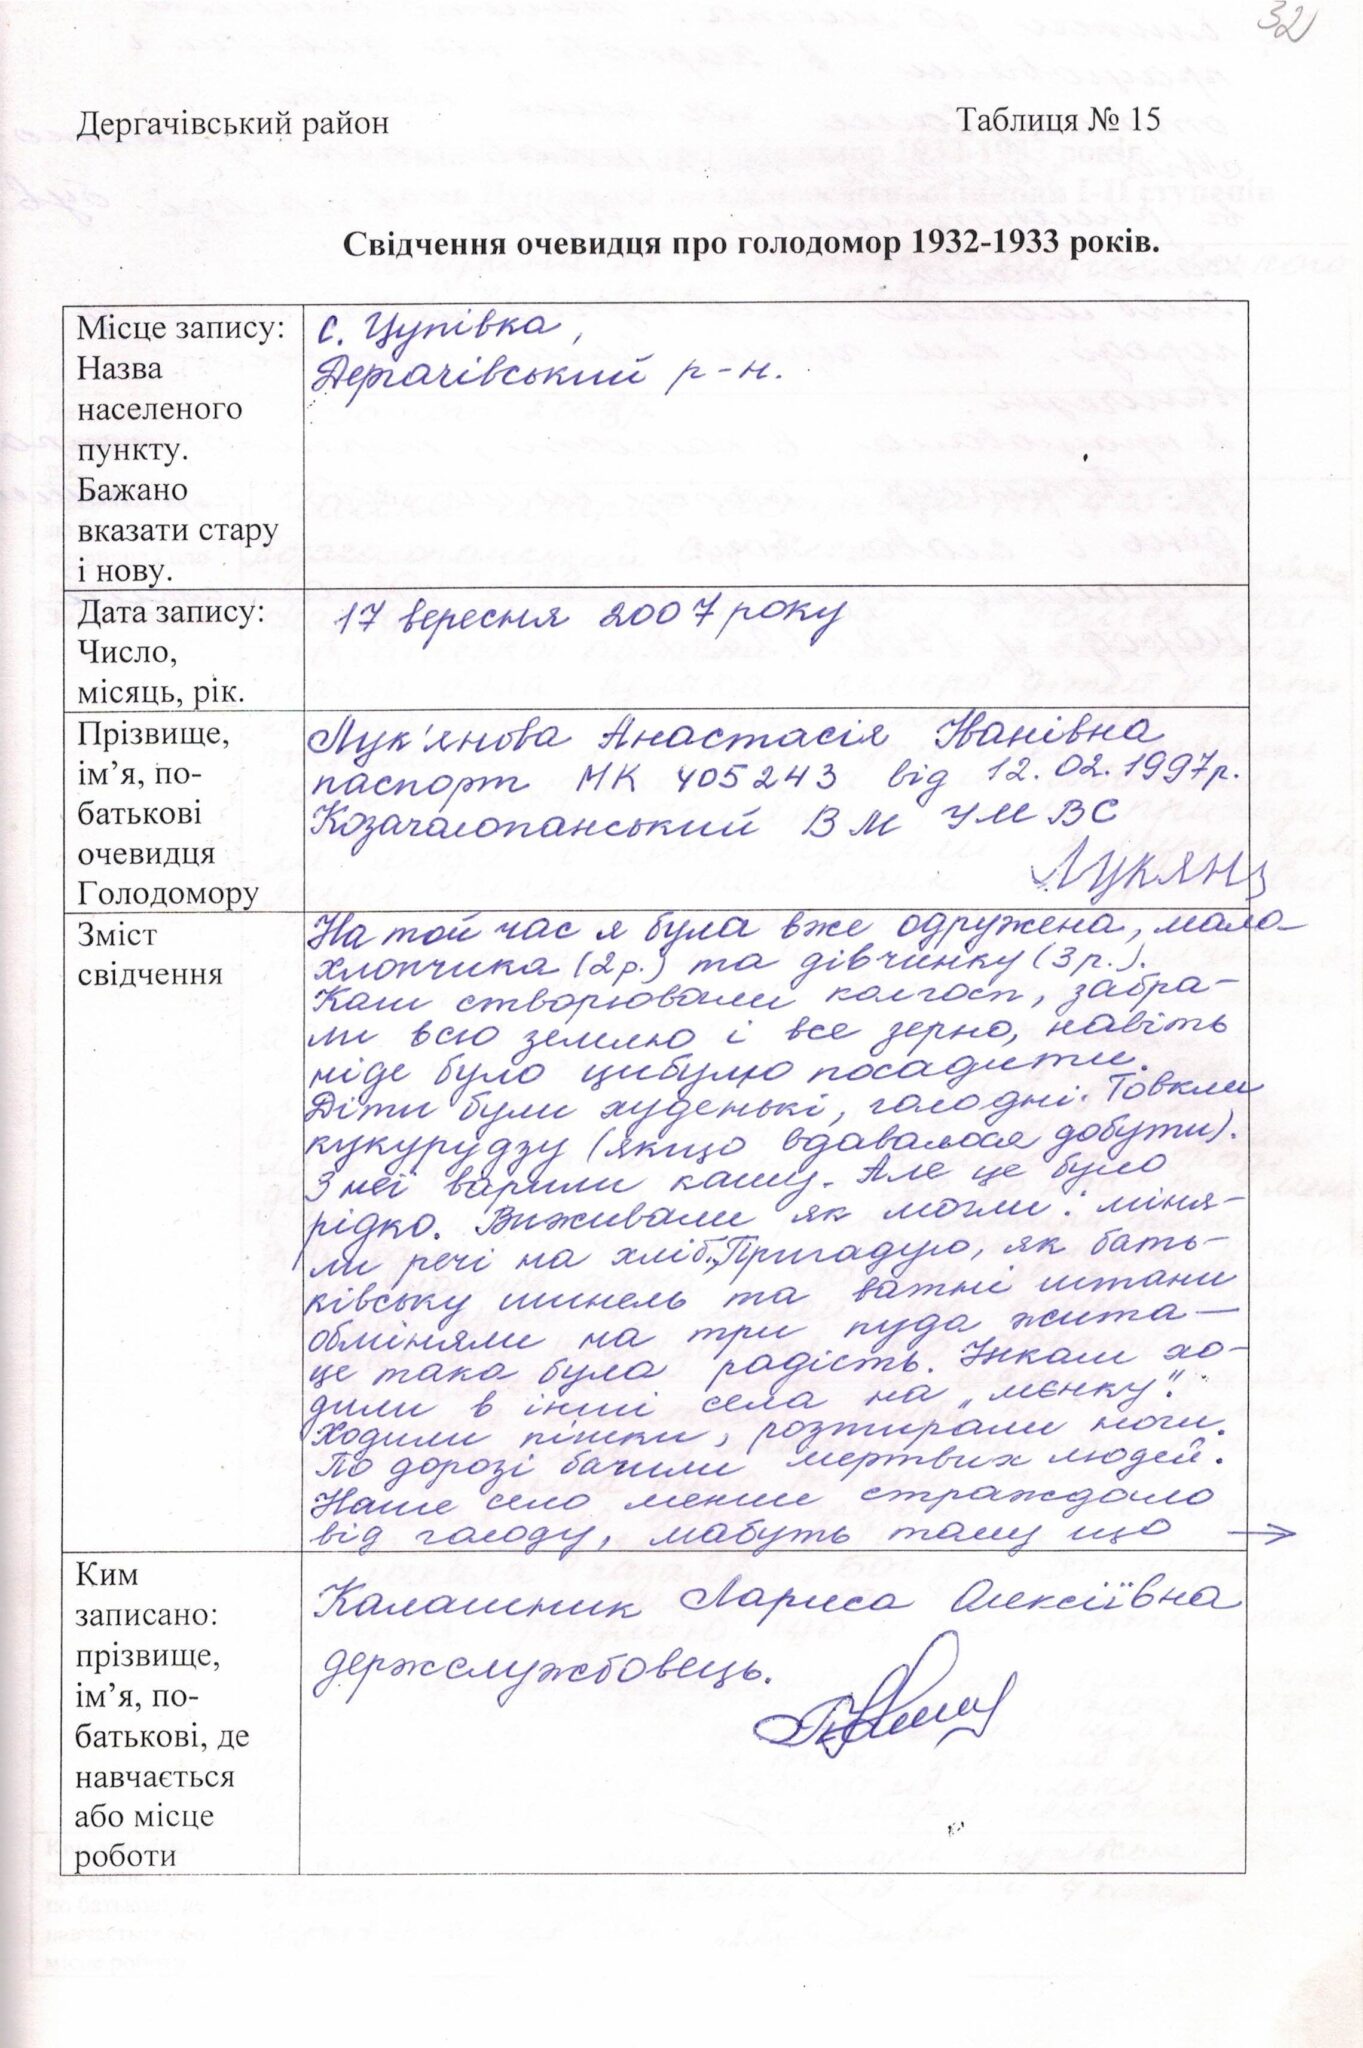 32
Дергачівський район
Таблиця № 15
Свідчення очевидця про голодомор 1932-1933 років.
Місце запису:
Назва
населеного
пункту.
Бажано
вказати стару
і нову.
с. Цупівка,
Дергачівський р-н.
Дата запису:
Число,
місяць, рік.
17 вересня 2007 року
Прізвище,
ім’я, по-
батькові
очевидця
Голодомору
Лук'янова Анастасія Іванівна
паспорт МК 405243 від 12.02.1997р.
Козачалопанський ВМ УМВС
Лукян
Зміст
свідчення
На той час я була вже одружена, мала
хлопчика (2р.) та дівчинку (3 р.).
Коли створювали колгосп, забра-
ли всю землю і все зерно, навіть
ніде було цибулю посадити.
Діти були худенькі, голодні. Товкли
кукурудзу (якщо вдавалося добути).
З неї варили кашу. Але це було
рідко. Виживали як могли: міня-
ли речі на хліб. Пригадую, як бать-
ківську шинель та ватні штани
обміняли на три пуда жита —
це така була радість. Інколи хо-
дили в інші села на „мєнку".
Ходили пішки, розтирали ноги.
По дорозі бачили мертвих людей.
Наше село менше страждало
від голоду, мабуть тому що →
Ким
записано:
прізвище,
ім’я, по-
батькові, де
навчається
або місце
роботи
Калашник Лариса Олексіївна
держслужбовець.